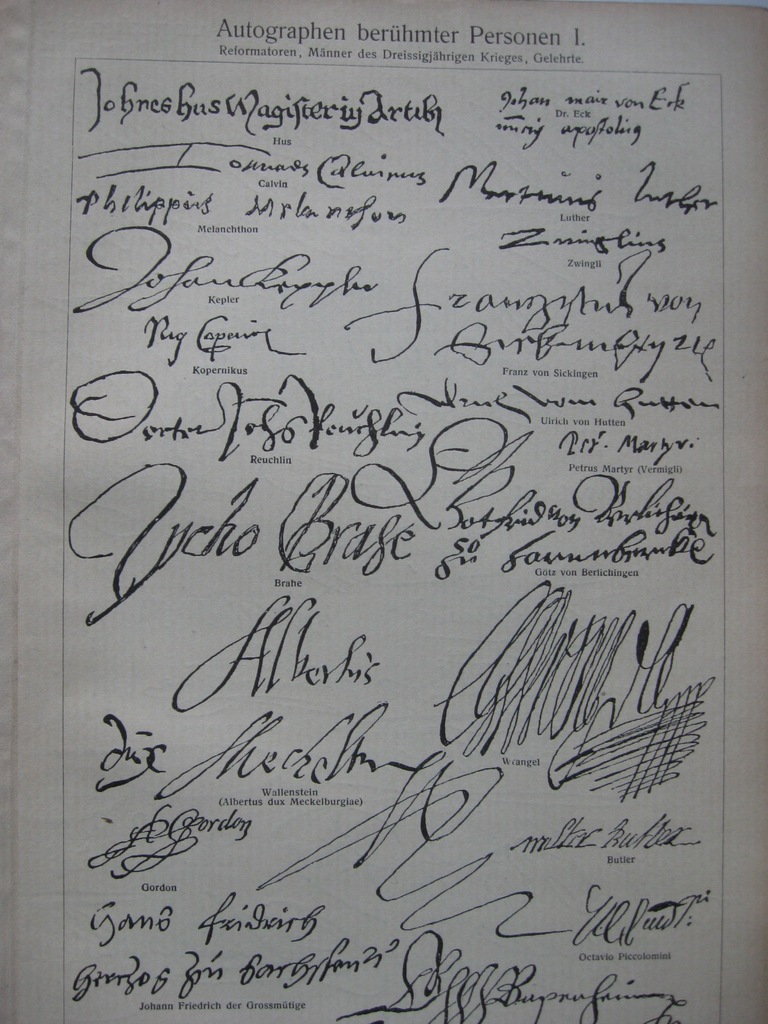 Autographen berühmter Personen I.
Reformatoren, Männer des Dreissigjährigen Krieges, Gelehrte.
Johnes hus Magister in Artibz
Hus
Johan mair von Eck
Dr. Eck
Calvin
Philippus Melanthon
Melanchthon
Martinus Luther
Luther
Zwinglius
Zwingli
Johan Keppler
Kepler
Franziscus von
Franz von Sickingen
Nic Copernic
Kopernikus
Ulrich von Hutten
Ulrich von Hutten
Doctor Johs Reuchlin
Reuchlin
Pet. Martyr
Petrus Martyr (Vermigli)
Tycho Brahe
Brahe
Gotfrid von Berlichingen
zu
Götz von Berlichingen
Albertus
dux Meckelb
Wallenstein
(Albertus dux Meckelburgiae)
Wrangel
Gordon
Gordon
walter butler
Butler
Hans Fridrich
Herczog zu Sachssen
Johann Friedrich der Grossmütige
Octavio Piccolomini
Papenheim